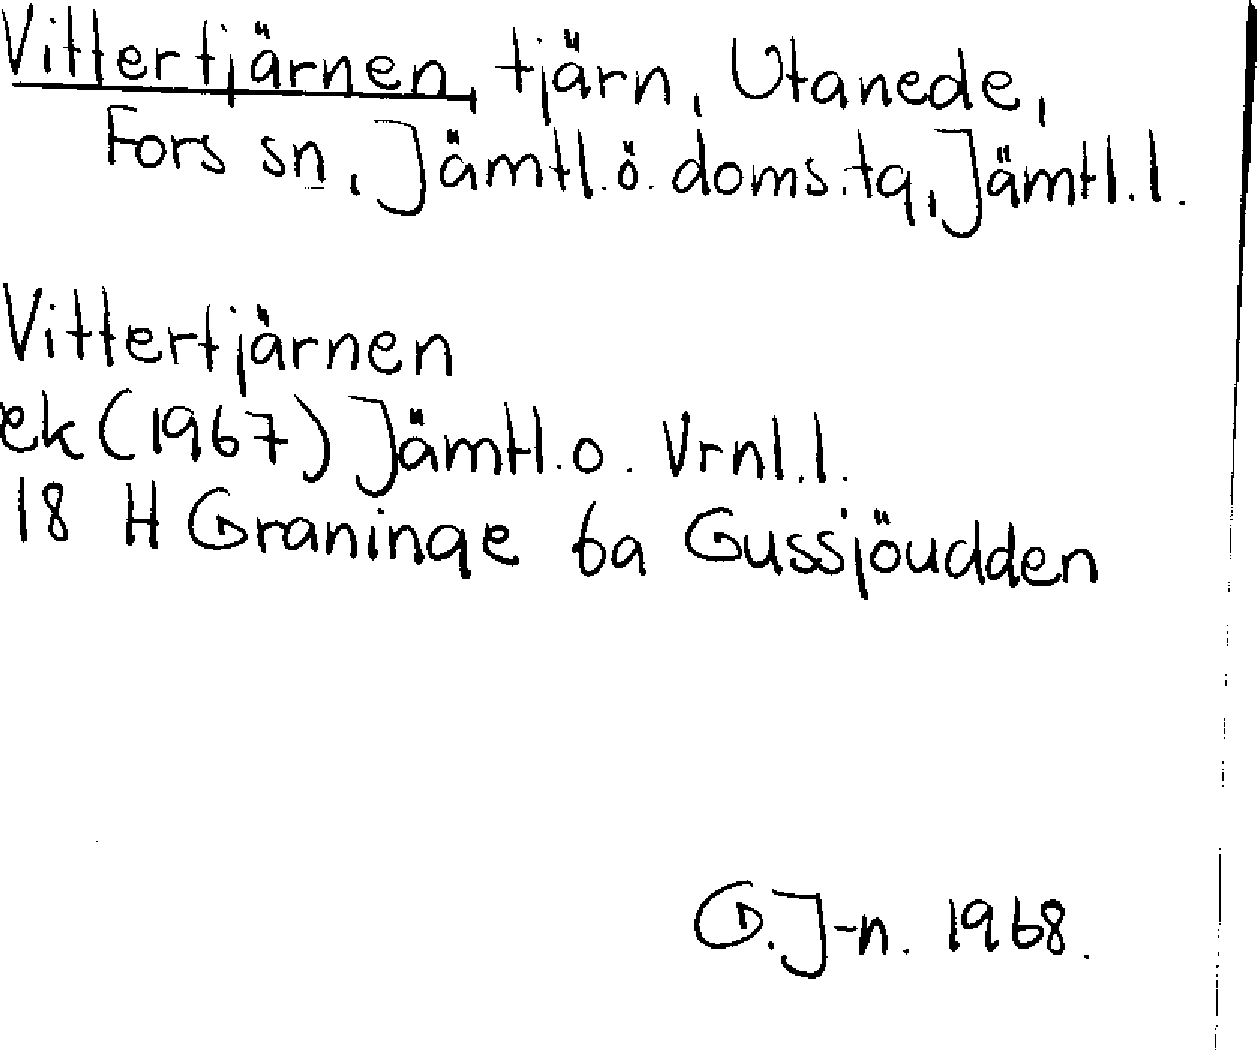 Vittertjärnen, tjärn, Utanede,
Fors sn, Jämtl.ö. doms.tg, Jämtl.l.
Vittertjärnen
ek (1967) Jämtl.o. Vrnl.l.
18 H Graninge 6a Gussjöudden
G.J-n. 1968.